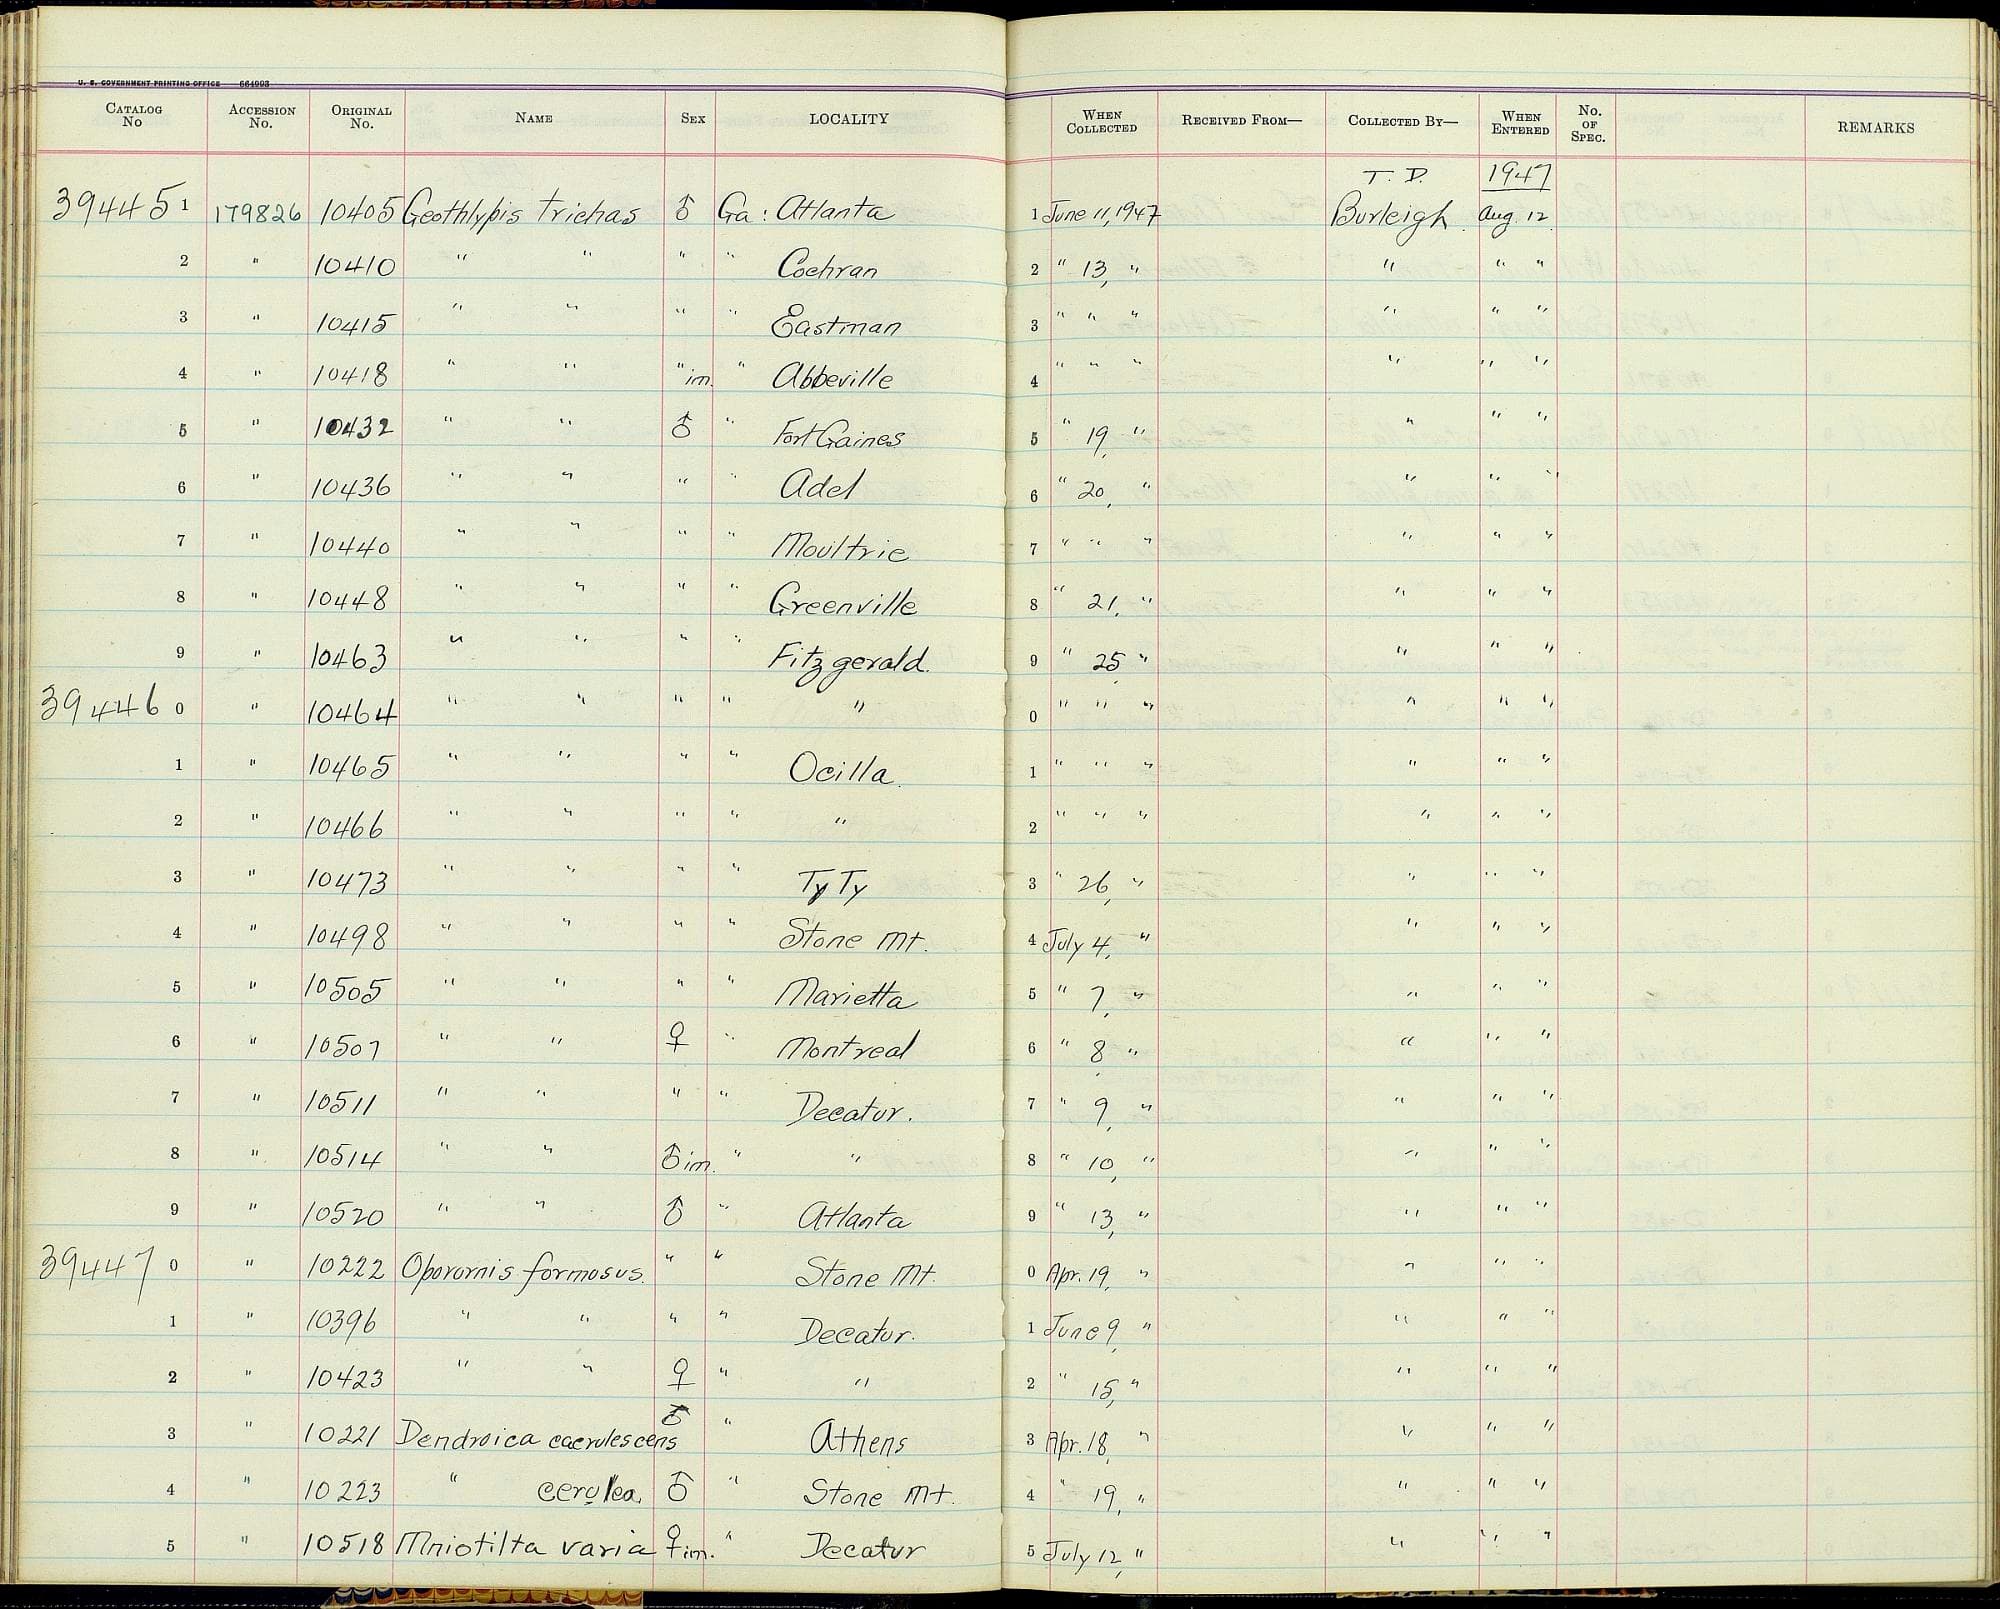 U. S. GOVERNMENT PRINTING OFFICE 664993
CATALOG No ACCESSION No. ORIGINAL No. NAME SEX LOCALITY WHEN COLLECTED RECEIVED FROM— COLLECTED BY— WHEN ENTERED No. OF SPEC. REMARKS
T. D. 1947
39445 1 179826 10405 Geothlypis trichas ♂ Ga: Atlanta 1 June 11, 1947 Burleigh Aug. 12
2 " 10410 " " " " Cochran 2 " 13, " " " "
3 " 10415 " " " " Eastman 3 " " " " " "
4 " 10418 " " " im. " Abbeville 4 " " " " " "
5 " 10432 " " ♂ " Fort Gaines 5 " 19, " " " "
6 " 10436 " " " " Adel 6 " 20, " " " "
7 " 10440 " " " " Moultrie 7 " " " " " "
8 " 10448 " " " " Greenville 8 " 21, " " " "
9 " 10463 " " " " Fitzgerald. 9 " 25, " " " "
39446 0 " 10464 " " " " " 0 " " " " " "
1 " 10465 " " " " Ocilla. 1 " " " " " "
2 " 10466 " " " " " 2 " " " " " "
3 " 10473 " " " " Ty Ty 3 " 26, " " " "
4 " 10498 " " " " Stone Mt. 4 July 4, " " " "
5 " 10505 " " " " Marietta 5 " 7, " " " "
6 " 10507 " " ♀ " Montreal 6 " 8, " " " "
7 " 10511 " " " " Decatur. 7 " 9, " " " "
8 " 10514 " " ♂ im. " " 8 " 10, " " " "
9 " 10520 " " ♂ " Atlanta 9 " 13, " " " "
39447 0 " 10222 Oporornis formosus. " " Stone Mt. 0 Apr. 19, " " " "
1 " 10396 " " " " Decatur. 1 June 9, " " " "
2 " 10423 " " ♀ " " 2 " 15, " " " "
3 " 10221 Dendroica caerulescens ♂ " Athens 3 Apr. 18, " " " "
4 " 10223 " cerulea. ♂ " Stone Mt. 4 " 19, " " " "
5 " 10518 Mniotilta varia ♀ im. " Decatur 5 July 12, " " " "